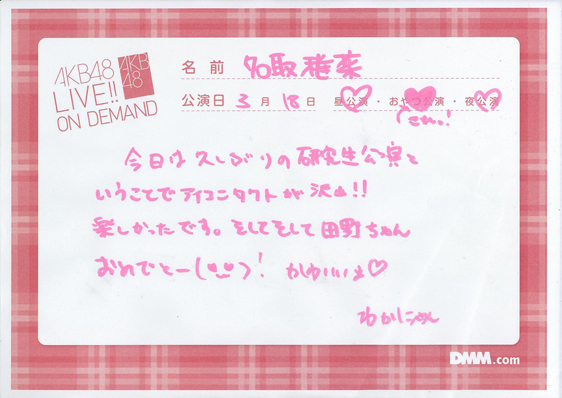 AKB48
LIVE!!
ON DEMAND
AKB
48
名前 名取稚菜
公演日 3月18日 昼公演・おやつ公演・夜公演
これっ!
今日は久しぶりの研究生公演と
いうことでアイコンタクトが沢山!!
楽しかったです。そしてそして田野ちゃん
おめでとー(••)! かわいいよ♡
わかにゃん
DMM.com